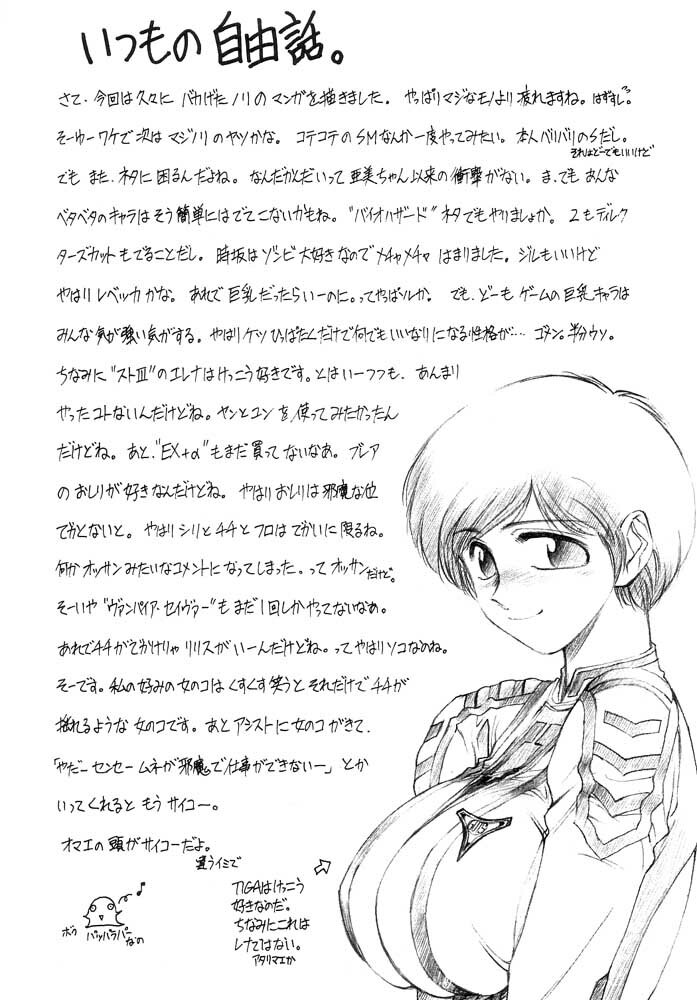 いつもの 自由話。
さて、今回は久々に バカげたノリのマンガを描きました。 やっぱりマジなモノより 疲れますね。はずすし。
そーゆーワケで次は マジノリのヤツかな。 コテコテの SMなんか一度やってみたい。 本人バリバリのSだし。
それはどーでもいいけど
でも また、ネタに 困るんだよね。 なんだかんだいって 亜美ちゃん以来の衝撃がない。 ま、でも あんな
ベタベタのキャラはそう簡単にはでてこないかもね。 "バイオハザード"ネタでもやりましょか。 2もディレク
ターズカットもでることだし。 時坂はゾンビ大好きなので メチャメチャ はまりました。 ジルもいいけど
やはりレベッカかな。 あれで巨乳だったらいーのに。ってやっぱソレか。 でも、どーも ゲームの巨乳キャラは
みんな気が強い気がする。 やはりケツひっぱたくだけで何でもいいなりになる性格が… ゴメン。半分ウソ。
ちなみに"ストⅢ"のエレナはけっこう好きです。とはいーつつも、あんまり
やったコトないんだけどね。ヤンとユン を使ってみたかったん
だけどね。 あと、"EX+α"もまだ買ってないなあ。 ブレア
の おしりが好きなんだけどね。 やはりおしりは邪魔な位
でかとないと。 やはりシリとチチとフロはでかいに限るね。
何かオッサンみたいなコメントになってしまった。ってオッサンだけど。
そーいや"ヴァンパイア・セイヴァー"もまだ1回しかやってないなあ。
あれでチチがでかけりゃリリスがいーんだけどね。ってやはりソコなのね。
そーです。私の好みの女のコはくすくす笑うと それだけでチチが
揺れるような女のコです。 あと アシストに女のコがきて、
「やだー センセー ムネが邪魔で仕事ができないー」とか
いってくれると もう サイコー。
オマエの頭がサイコーだよ。
違うイミで
ボク パッパラパー なの
TIGAはけっこう
好きなのだ。
ちなみにこれは
レナではない。
アタリマエか
GUTS